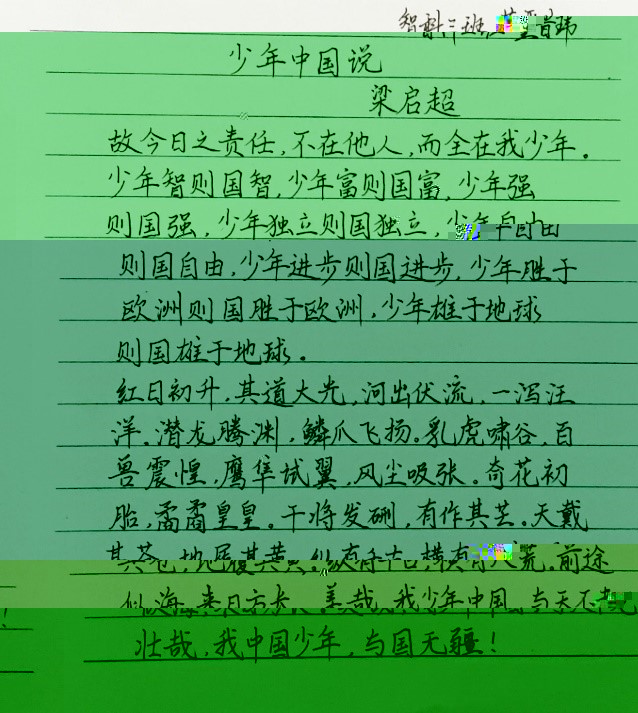 少年中国说
梁启超
故今日之责任,不在他人,而全在我少年。
少年智则国智,少年富则国富,少年强
则国强,少年独立则国独立,少年自由
则国自由,少年进步则国进步,少年胜于
欧洲则国胜于欧洲,少年雄于地球
则国雄于地球。
红日初升,其道大光,河出伏流,一泻汪
洋,潜龙腾渊,鳞爪飞扬。乳虎啸谷,百
兽震惶,鹰隼试翼,风尘吸张。奇花初
胎,矞矞皇皇。干将发硎,有作其芒。天戴
其苍,地履其黄。纵有千古,横有八荒。前途
似海,来日方长。美哉,我少年中国,与天不老
壮哉,我中国少年,与国无疆!